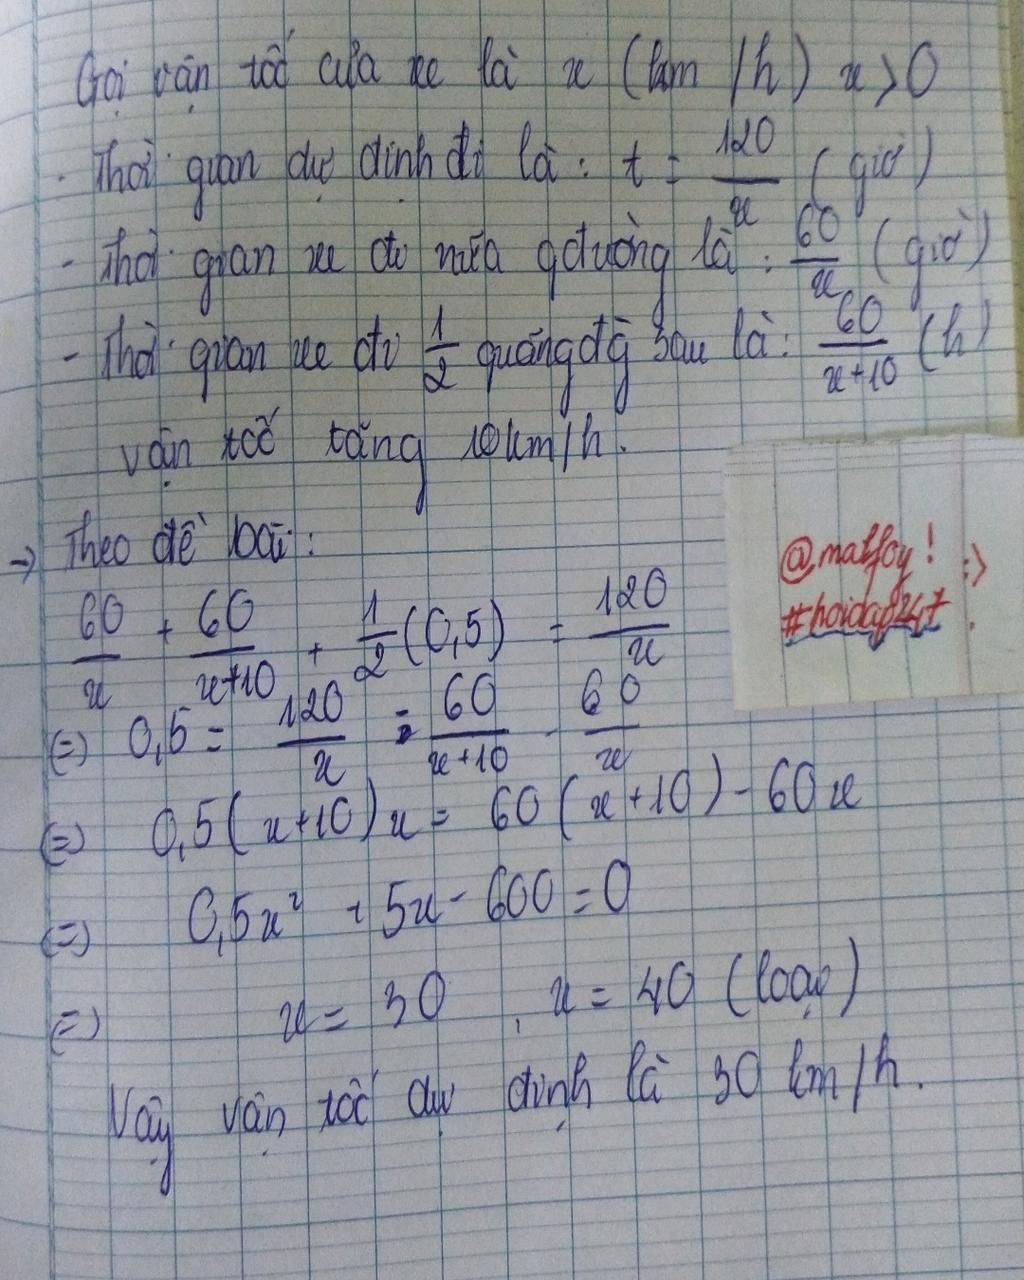 Gọi vận tốc của xe là x (km/h) x>0
- Thời gian dự định đi là: t = 120/x (giờ)
- Thời gian xe đi nửa qđường là: 60/x (giờ)
- Thời gian xe đi 1/2 quãng đg sau là: 60/(x+10) (h)
vận tốc tăng 10km/h.
→ Theo đề bài:
60/x + 60/(x+10) + 1/2 (0,5) = 120/x
(=) 0,5 = 120/x = 60/(x+10) - 60/x
(=) 0,5(x+10)x = 60(x+10) - 60x
(=) 0,5x² + 5x - 600 = 0
(=) x = 30 , x = 40 (loại)
Vậy vận tốc dự định là 30 km/h.
@matfoy! :>
#hoidap247.